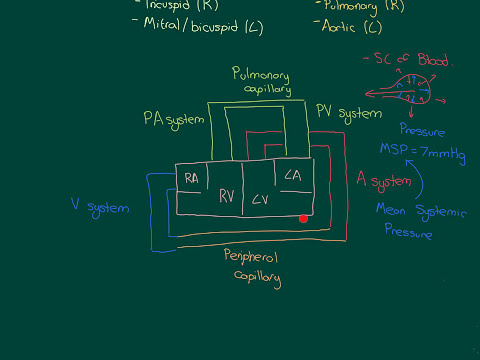 - Incuspid (R)
- Mitral/bicuspid (L)
- Pulmonary (R)
- Aortic (L)
- 5L of Blood.
Pulmonary
capillary
PA system
PV system
Pressure
MSP = 7mmHg
RA
LA
RV
LV
A system
V system
Mean Systemic
Pressure
Peripherol
Capillary